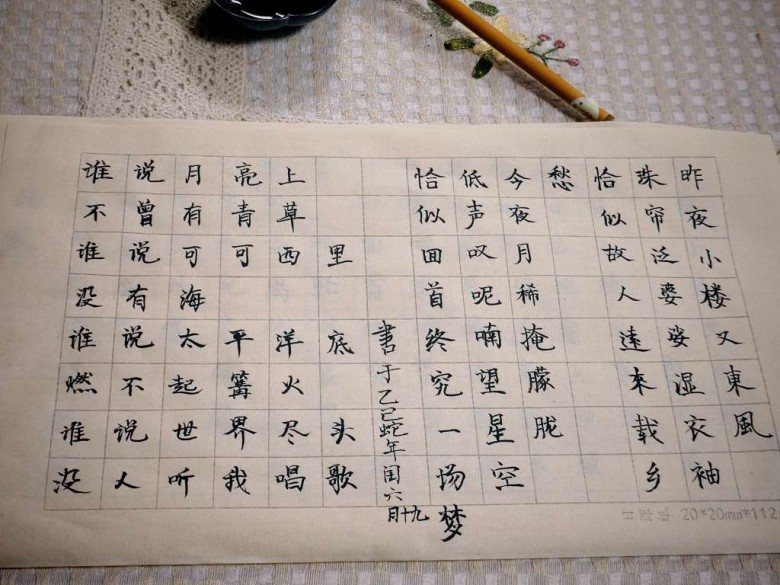 昨夜小楼又東風
珠帘泛婆娑湿衣袖
恰似故人遠来载乡
愁
今夜月稀掩朦胧
低声叹呢喃望星空
恰似囬首终究一场梦
書于乙巳蛇年闰六
月十九
谁说月亮上
不曾有青草
谁说可可西里
没有海
谁说太平洋底
燃不起篝火
谁说世界尽头
没人听我唱歌
20*20mm*112